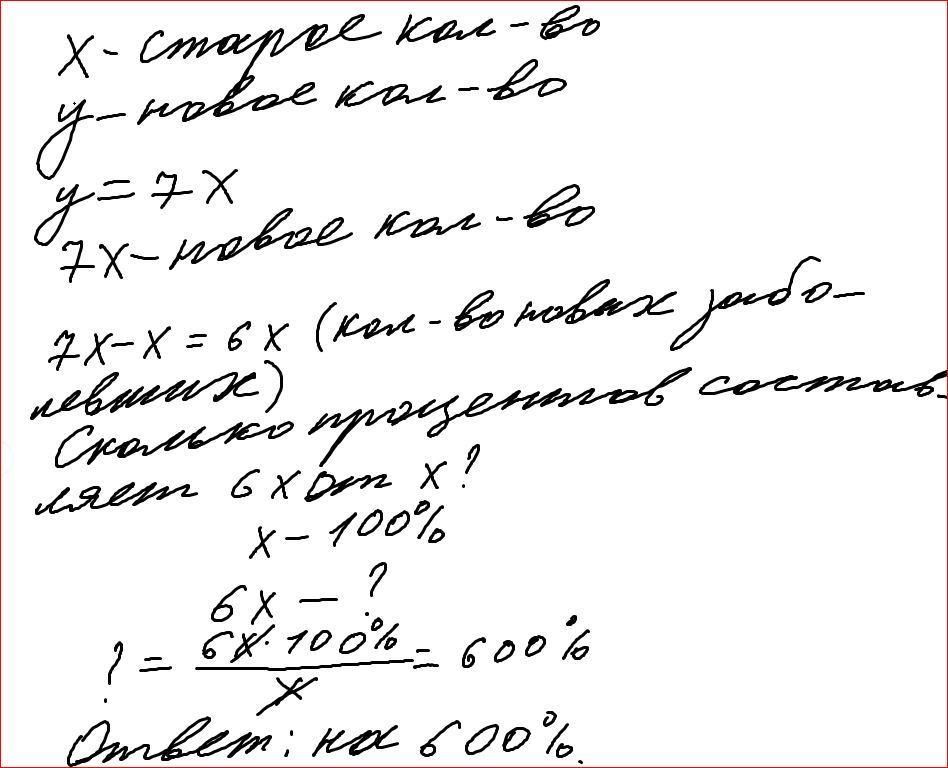 x - старое кол-во
y - новое кол-во
y = 7x
7x - новое кол-во
7x - x = 6x (кол-во новых забо-
левших)
Сколько процентов состав-
ляет 6x от x?
x - 100%
6x - ?
? = 6x · 100% / x = 600%
Ответ: на 600%.